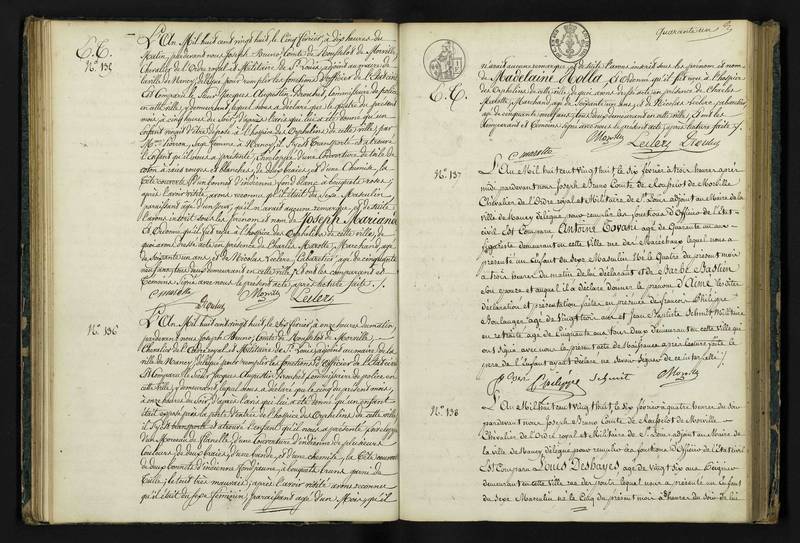 E.T.
N.° 135
L'An Mil huit cent vingt huit, le Cinq février, à dix heures du
Matin, pardevant nous Joseph Bruno, Comte de Morville,
Chevalier de l'Ordre royal et Militaire de St Louis, adjoint au maire de
la ville de Nancy délégué pour remplir les fonctions d'officier de l'état civil
Est Comparu le Sieur Jacques Augustin Commissaire de police
en cette ville, y demeurant, lequel nous a déclaré que le du présent
mois, à cinq heures du Soir, d'après l'avis qui lui a été donné qu'un
Enfant d'être déposé à l'hospice des Orphelins de cette ville, par
à Nancy, il s'y est transporté et a trouvé
L'enfant qu'il nous a présenté, Enveloppé d'une Couverture de toile de
coton à raies rouges et blanches, de deux braies, et d'une Chemise, la
tête couverte d'un bonnet d'indienne fond blanc à bouquets roses;
après l'avoir visité, avons reconnu qu'il était du Sexe Masculin
paraissant âgé d'un jour, qu'il n'avait aucune remarque, et de suite
l'avons inscrit sous les prénom et nom de Joseph Mariana
Et Ordonné qu'il fût reçu à l'hospice des Orphelins de cette ville, de
quoi avons dressé acte, en présence de Charles Marotte, Marchand, âgé
de Soixante un ans, et de Nicolas Leclerc, Cabaretier, âgé de cinquante
neuf ans, tous deux demeurant en cette ville, Et ont les comparant et
témoins Signé avec nous le présent acte, après lecture faite ./.
C marotte Morville Leclerc
N.° 136
L'An Mil huit cent vingt huit, le Six février, à onze heures du matin,
pardevant nous Joseph Bruno, Comte de Morville,
Chevalier de l'Ordre royal et Militaire de St Louis, adjoint au maire de la
ville de Nancy, délégué pour remplir les fonctions d'officier de l'état civil
Est Comparu le Sieur Jacques Augustin Commissaire de police, en
cette ville, y demeurant, lequel nous a déclaré que le cinq du présent mois,
à onze heures du Soir, d'après l'avis qui lui a été donné qu'un enfant
était exposé près la porte d'entrée de l'hospice des Orphelins de cette ville,
il s'y est transporté et a trouvé l'enfant qu'il nous a présenté, Enveloppé
d'un Morceau de flanelle, d'une Couverture d'indienne de plusieurs
Couleurs, de deux braies, d'une bande, et d'une chemise, la tête couverte
de deux bonnets d'indienne fond jaune, à bouquets bruns garni de
tulle; le tout très mauvais; après l'avoir visité avons reconnu
qu'il était du Sexe féminin, paraissant âgé d'un Mois, qu'il
Quarante un
E.T.
n'avait aucune remarque, et de suite l'avons inscrit sous les prénom et nom
de Madelaine Holla Et Ordonné qu'il fût reçu à l'hospice
des Orphelins de cette ville, de quoi avons dressé acte, en présence de Charles
Marotte, Marchand, âgé de Soixante un ans, et de Nicolas Leclerc, Cabaretier,
âgé de cinquante neuf ans, tous deux demeurant en cette ville, Et ont les
Comparant et témoins Signé avec nous le présent acte, après lecture faite ./.
C marotte Morville Leclerc
N.° 137
L'An Mil huit cent vingt huit le Six février à trois heures après
midi pardevant nous Joseph Bruno Comte de Morville
Chevalier de l'Ordre royal et Militaire de St Louis adjoint au Maire de la
ville de Nancy délégué pour remplir les fonctions d'Officier de l'état
civil Est Comparu Antoine Tovani âgé de Quarante un ans
figuriste demeurant en cette ville rue des Maréchaux lequel nous a
présenté un Enfant du Sexe Masculin Né le Quatre du présent mois
à trois heures du matin de lui déclarant et de Barbe Bastien
son épouse et auquel il a déclaré donner le prénom d'Aimé les dites
déclaration et présentation faites en présence de François Philippe
Boulanger âgé de vingt trois ans et Jean Baptiste Schmit Militaire
en retraite âgé de Cinquante deux ans tous deux demeurant en cette ville qui
ont Signé avec nous le présent acte de Naissance après lecture faite le
père de l'Enfant ayant déclaré ne Savoir Signer de ce interpellé ./.
Philippe Schmit Morville
N.° 138
L'An Mil huit cent vingt huit le Six février à quatre heures du Soir
pardevant nous Joseph Bruno Comte de Morville
Chevalier de l'Ordre royal et Militaire de St Louis adjoint au Maire de
la ville de Nancy délégué pour remplir les fonctions d'Officier de l'état civil
Est Comparu Louis Deshayes âgé de vingt six ans
demeurant en cette ville rue lequel nous a présenté un Enfant
du Sexe Masculin né le Cinq du présent mois à heures du Soir de lui